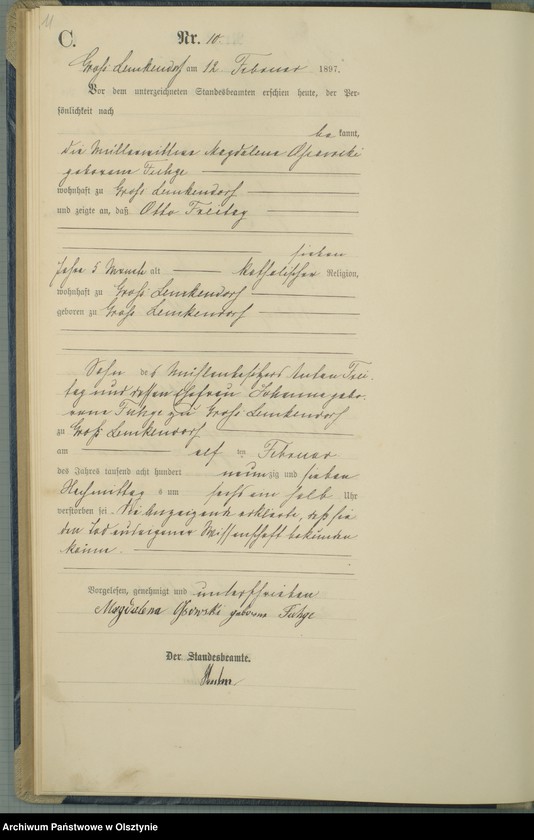 11
C.
Nr. 10
Groß Lemkendorf am 12 Februar 1897.
Vor dem unterzeichneten Standesbeamten erschien heute, der Per-
sönlichkeit nach
be kannt,
die Müllerwittwe Magdalena Osowski
geborene Fuhge
wohnhaft zu Groß Lemkendorf
und zeigte an, daß Otto Freitag
sieben
Jahre 5 Monate alt katholischer Religion,
wohnhaft zu Groß Lemkendorf
geboren zu Groß Lemkendorf
Sohn des Mühlenbesitzers Anton Frei-
tag und dessen Ehefrau Johanna gebo-
rene Fuhge zu Groß Lemkendorf
zu Groß Lemkendorf
am elf ten Februar
des Jahres tausend acht hundert neunzig und sieben
Nachmittag s um sechs ein halb Uhr
verstorben sei. Die Anzeigende erklärte, daß sie
den Tod aus eigener Wissenschaft bekunden
könne.
Vorgelesen, genehmigt und unterschrieben
Magdalena Osowski geborene Fuhge
Der Standesbeamte.
Archiwum Państwowe w Olsztynie